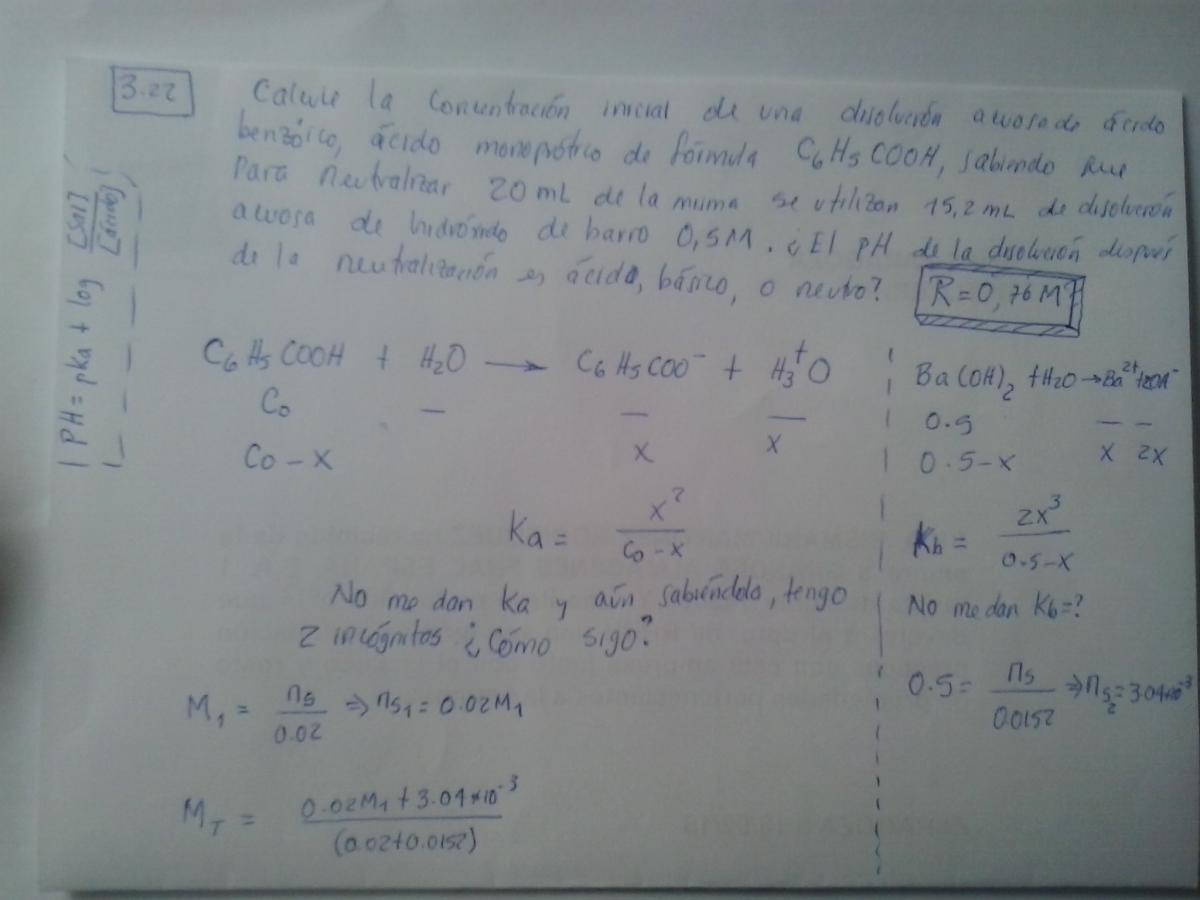 3.22
Calcule la concentración inicial de una disolución acuosa de ácido
benzóico, ácido monoprótico de fórmula C₆H₅COOH, sabiendo que
para neutralizar 20 mL de la misma se utilizan 15,2 mL de disolución
acuosa de hidróxido de barro 0,5M. ¿El pH de la disolución después
de la neutralización es ácido, básico, o neutro? R = 0,76 M
PH = pka + log [sal]/[ácido]
C₆H₅COOH + H₂O → C₆H₅COO⁻ + H₃⁺O
Co — — —
Co - x x x
Ka = x²/(Co - x)
No me dan ka y aún sabiéndola, tengo
2 incógnitas ¿Cómo sigo?
M₁ = ns/0.02 ⇒ ns₁ = 0.02M₁
M_T = (0.02M₁ + 3.04*10⁻³)/(0.02+0.0152)
Ba(OH)₂ + H₂O → Ba²⁺ +
0.5 — —
0.5-x x 2x
Kb = 2x³/(0.5-x)
No me dan Kb=?
0.5 = ns/0.0152 ⇒ ns₂ = 3.04*10⁻³